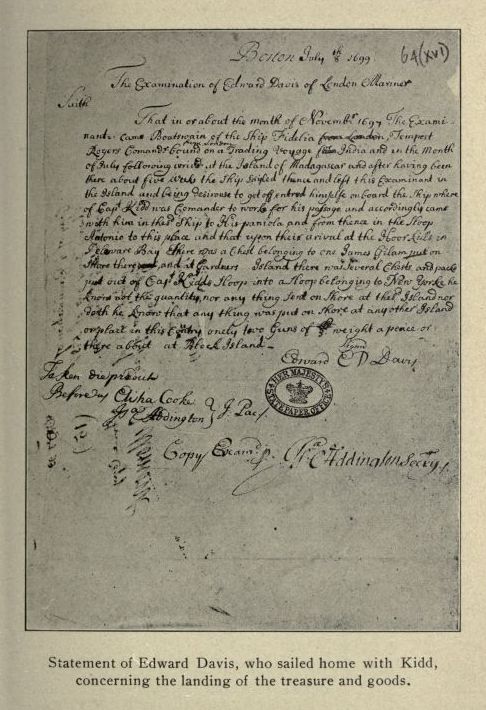 Boston July th 8 1699
64(XVI)
The Examination of Edward Davis of London Mariner
Saith
That in or about the month of Novembr 1697 The Exami-
nant came Boatswain of the Ship Fidelia from London, Tempest
Rogers Comander bound on a Trading Voyage for India and in the Month
of July following arived at the Island of Madagascar and after having been
there about five weeks the Ship sailed thence and left this Examinant in
the Island and being desirouse to get off entred himselfe on board the Ship where
of Capt. Kidd was Comander to worke for his passage and accordingly came
with him in the sd Ship to Hispaniola and from thence in the Sloop
Antonio to this place and that upon their arival at the Hoor Kills in
Delaware Bay there was a Chest belonging to one James Gilam put on
Shore there and at Gardners Island there was Several Chests and packs
put out of Capt Kidds Sloop into a Sloop belonging to New Yorke he
knows not the quantity, nor any thing Sent on Shore at the sd Island nor
doth he know that any thing was put on Shore at any other Island
or place in this only two Guns of weight a peice or
there about at Block Island.
Signed
Edward E D Davis
Taken die predict
Before us Elisha Cooke
Is Addington } J. Pac
HER MAJESTY'S STATE PAPER OFFICE
Copy Examd p. Isa Addington Secry
Statement of Edward Davis, who sailed home with Kidd,
concerning the landing of the treasure and goods.